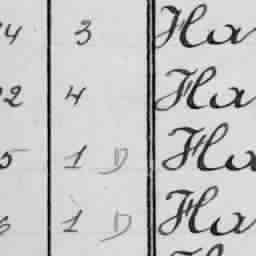 4 3 Ha
2 4 Ha
5 1 D Ha
6 1 D Ha